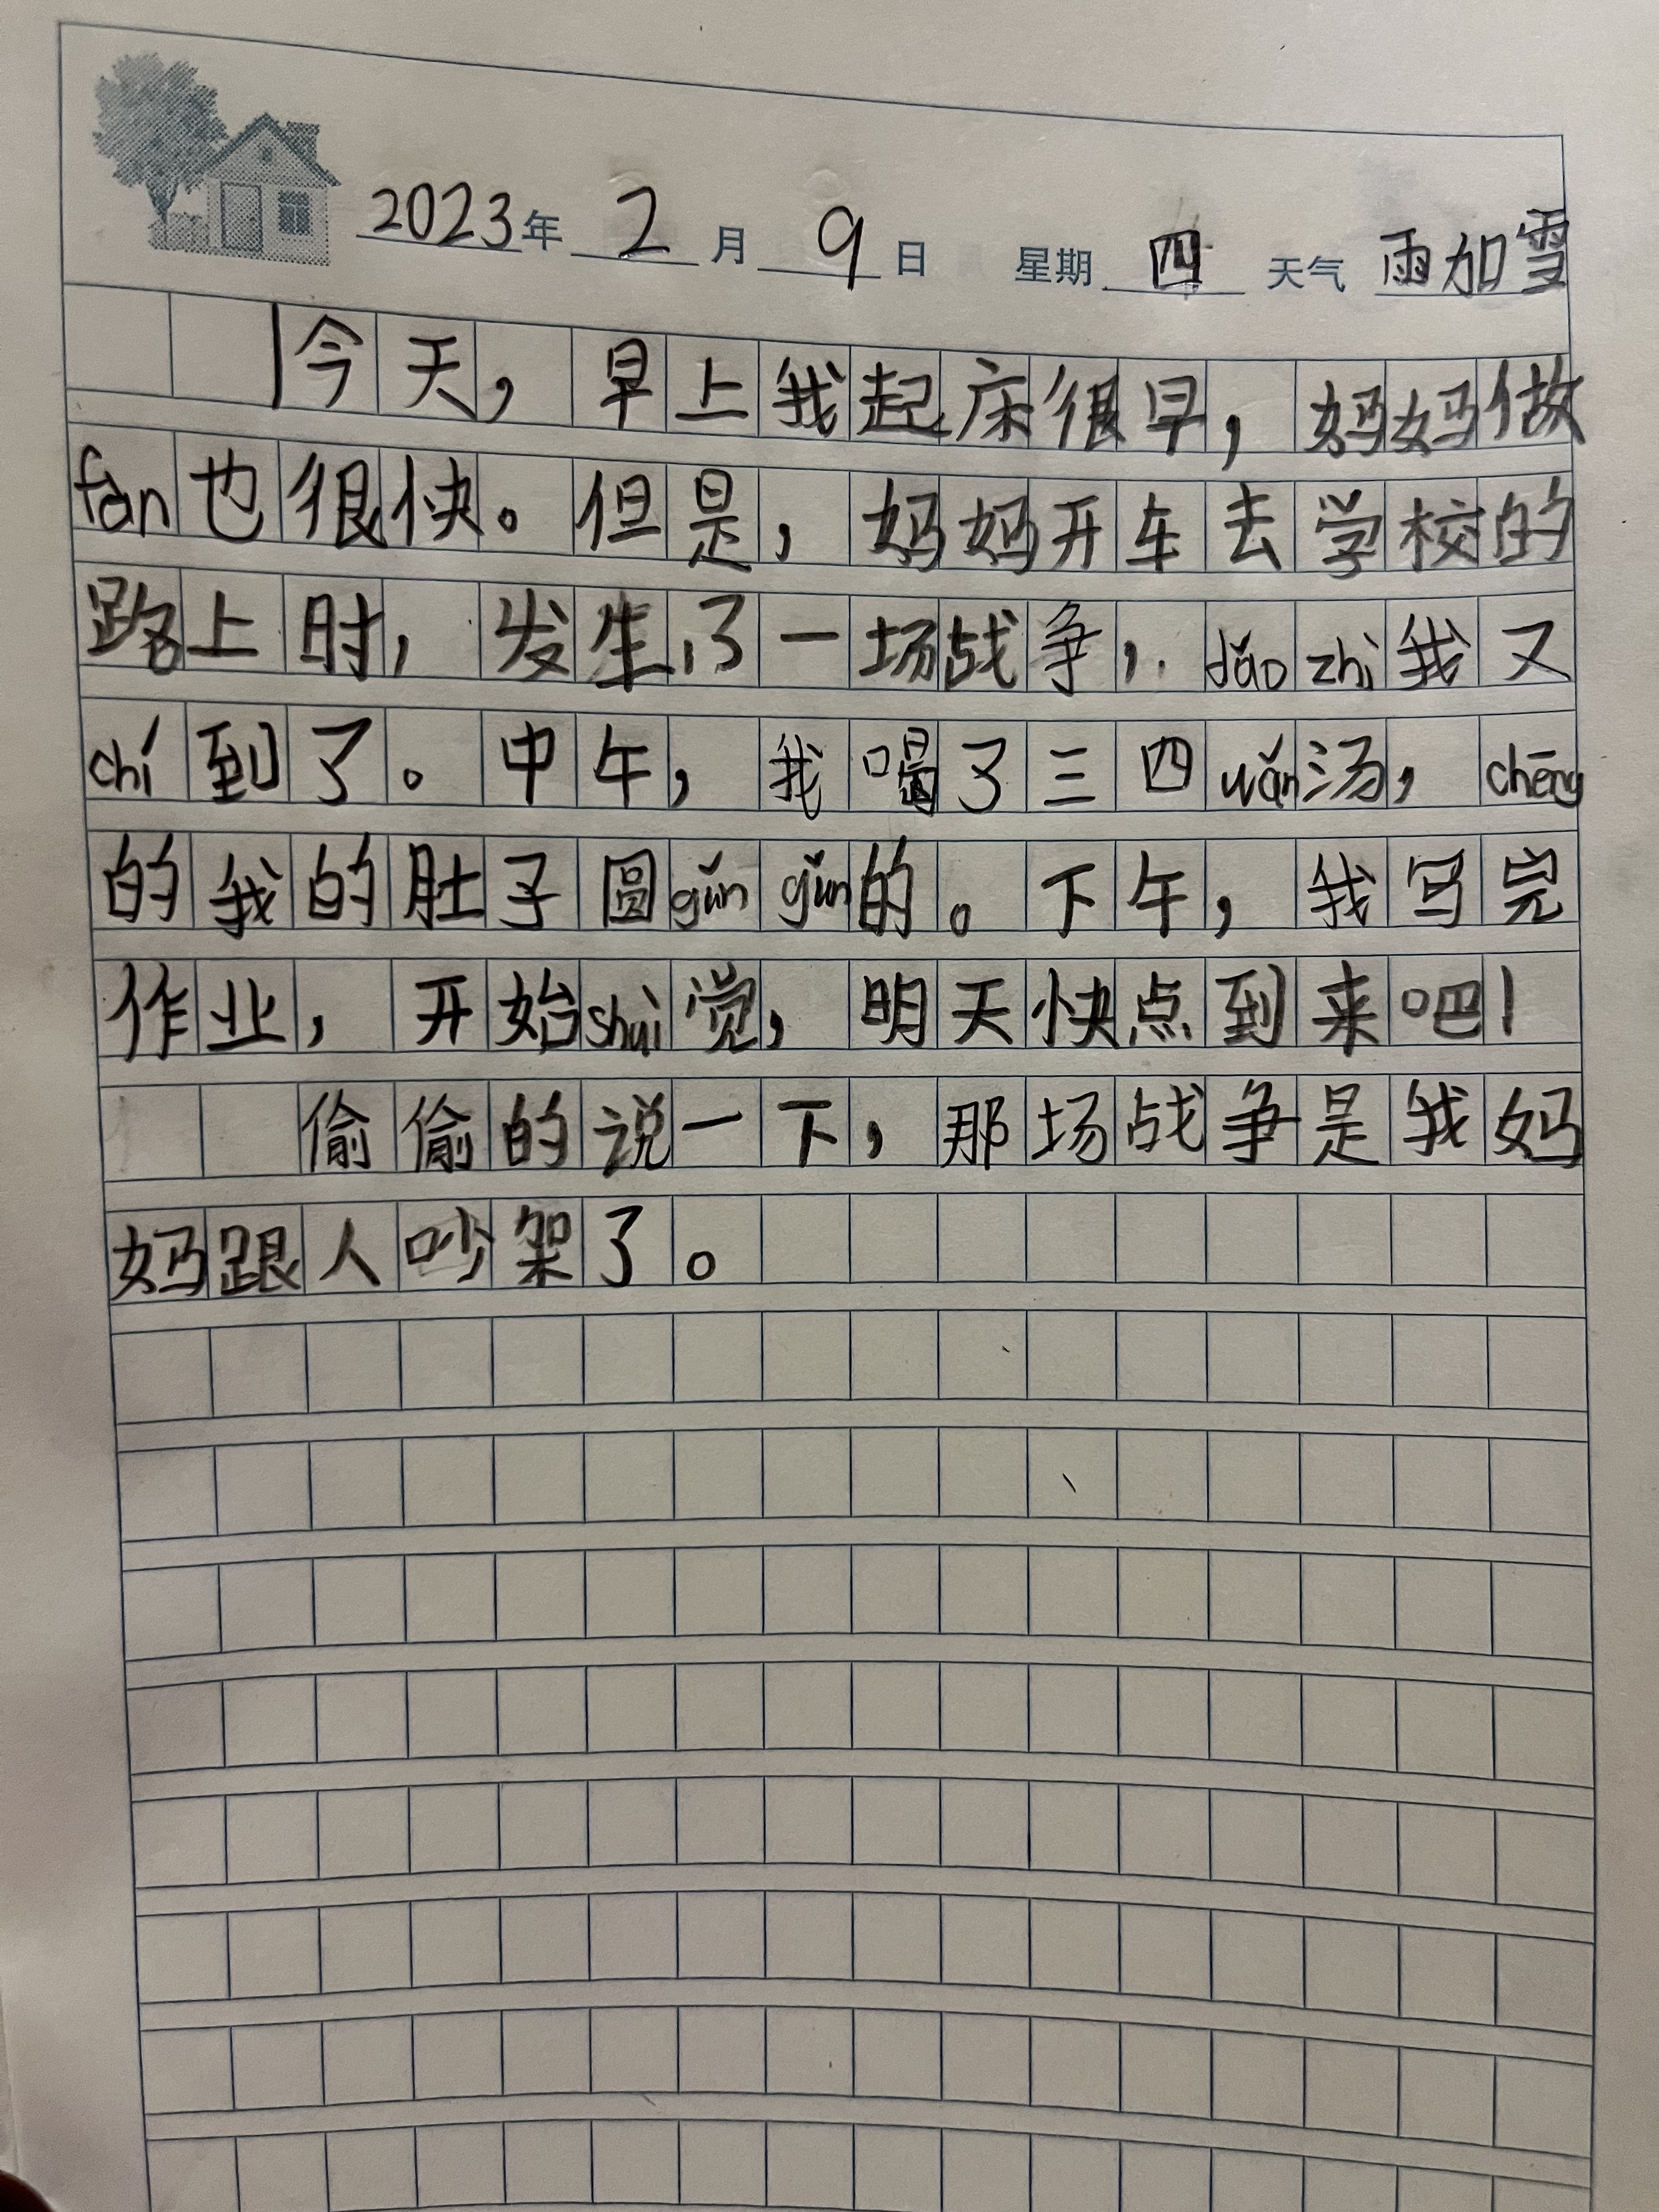 2023年2月9日 星期四 天气 雨加雪
今天，早上我起床很早，妈妈做
fàn也很快。但是，妈妈开车去学校的
路上时，发生了一场战争，dǎo zhì我又
chí到了。中午，我喝了三四wǎn汤，chēng
的我的肚子圆gǔn gǔn的。下午，我写完
作业，开始shuì觉，明天快点到来吧！
偷偷的说一下，那场战争是我妈
妈跟人吵架了。